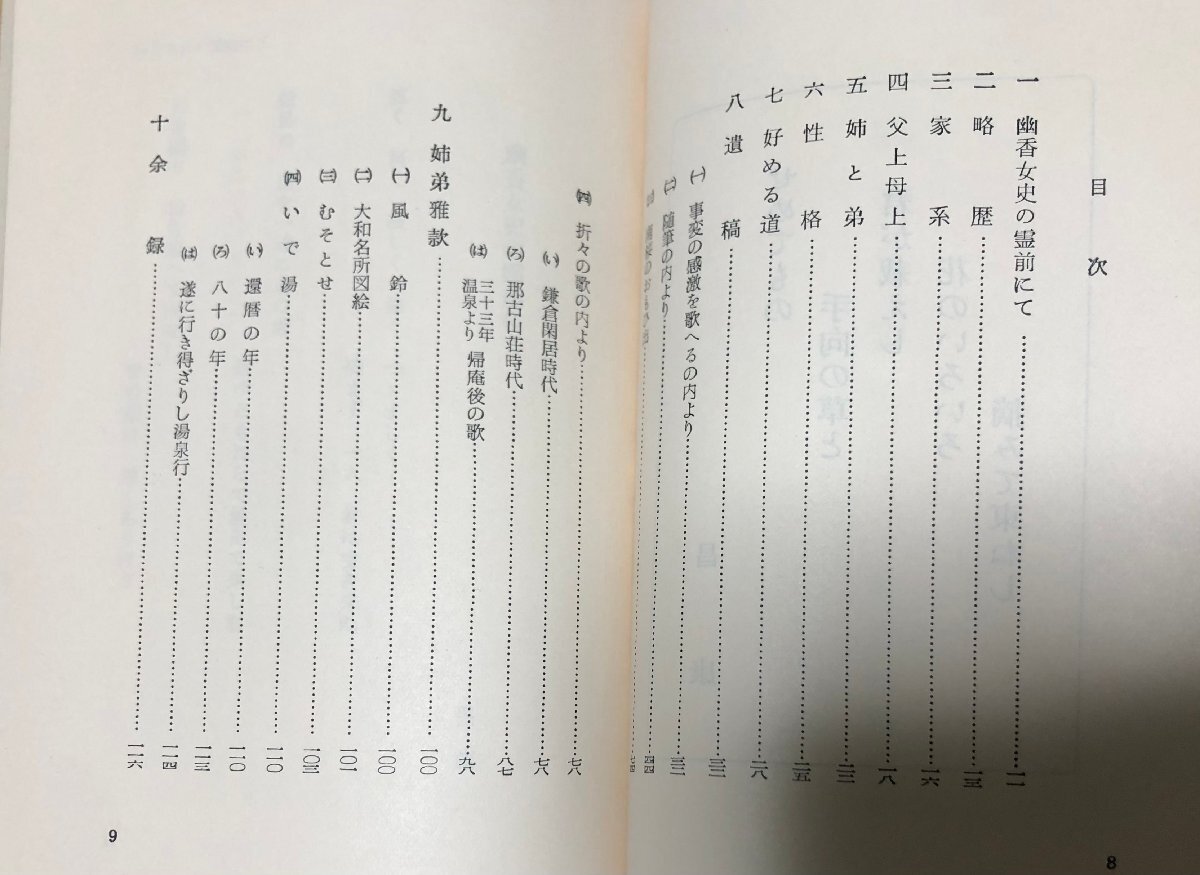 目次
一 幽香女史の霊前にて……一一
二 略歴……一三
三 家系……一六
四 父上母上……一八
五 姉と弟……
六 性格……二五
七 好める道……二八
八 遺稿……
㈠ 事変の感激を歌へるの内より……
㈡ 随筆の内より……四四
七四
㈣ 折々の歌の内より……七八
(い) 鎌倉閑居時代……七八
(ろ) 那古山荘時代……八七
(は) 三十三年温泉より 帰庵後の歌……九八
九 姉弟雅款……一〇〇
㈠ 風鈴……一〇〇
㈡ 大和名所図絵……一〇一
㈢ むそとせ……一〇三
㈣ いで湯……一一〇
(い) 還暦の年……一一〇
(ろ) 八十の年……
(は) 遂に行き得ざりし湯泉行……一一四
十 余録……一一六
8
9